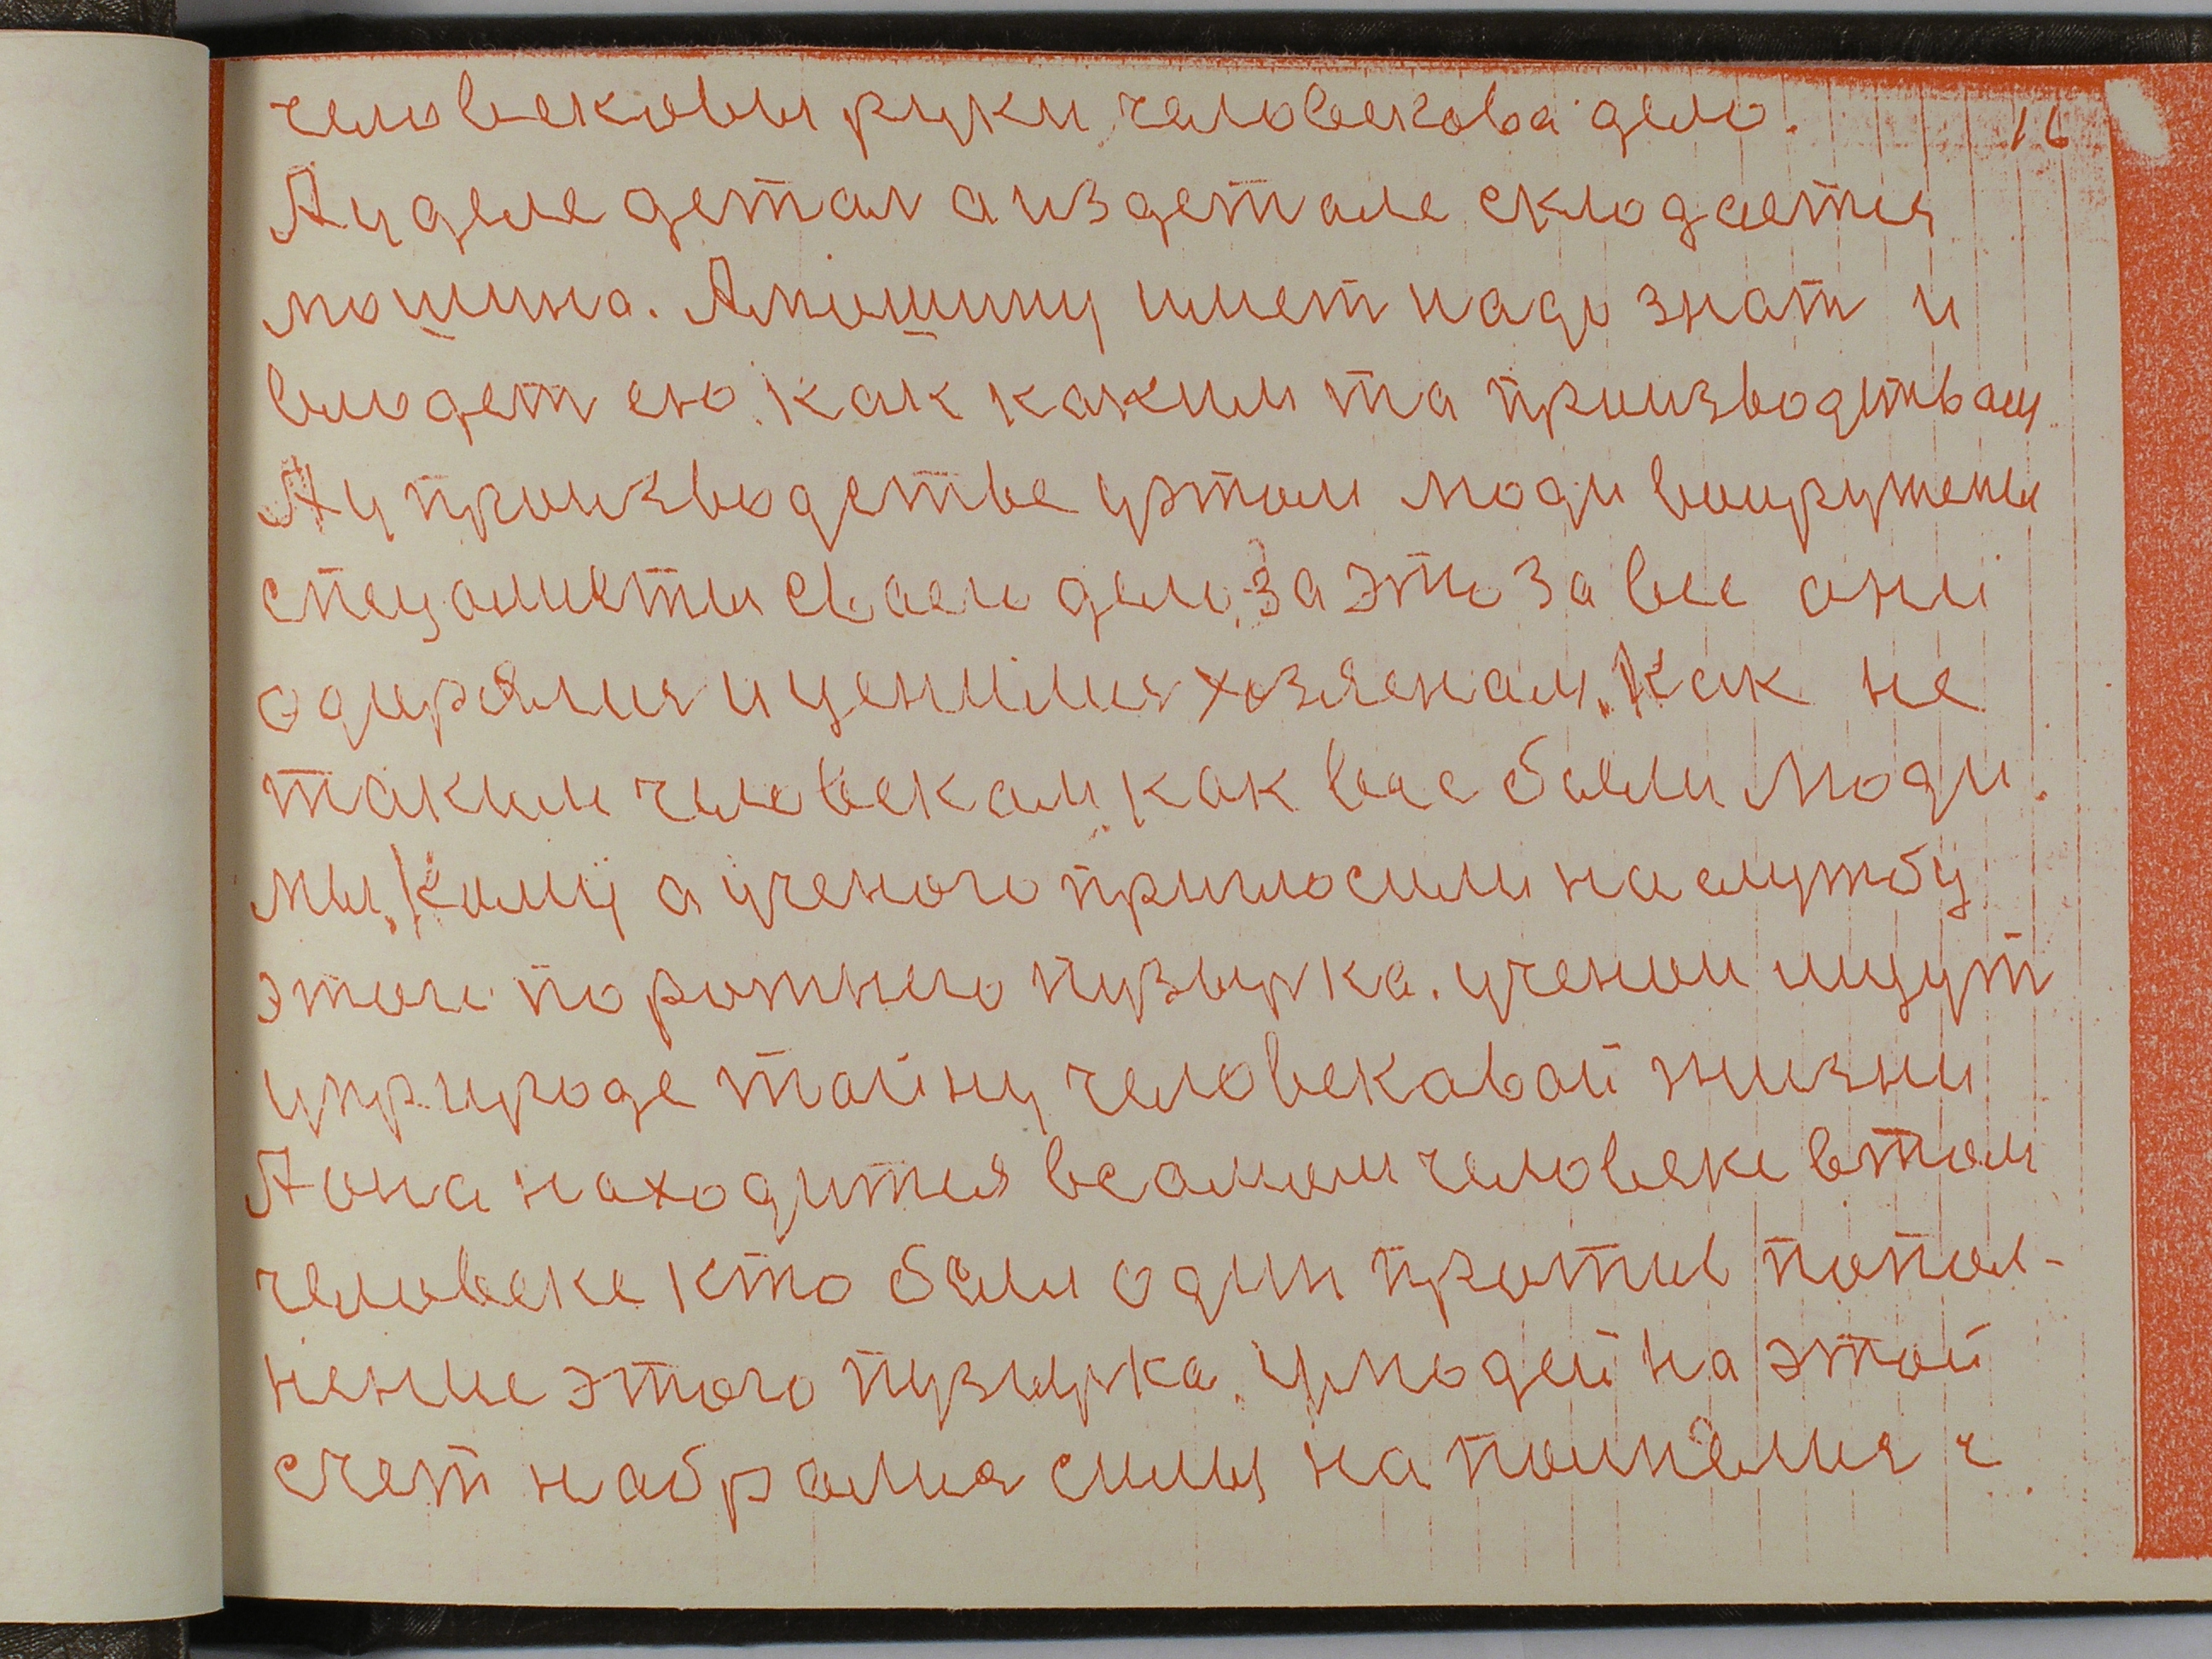 человековы руки, человекова дело. 16
А у деле детал а из детале склодается
мошина. А мошину имет надо знат и
влюдет ею. как каким та производствам
А у производстве у этом люди вооружены
спецалисты сваего дело, за это за все они
одирялися и ценилися хозяенам. Как не
таким человекам, как все были люди
мы. Кому а ученого приглосили на службу
этого порожнего пузырка. ученои ищут
у природе тайну человекавай жизни
А она находится в самом человеке в том
человеке кто были один против попол-
нение этого пузырка. У людей на этой
счет набралися силы на полнилися